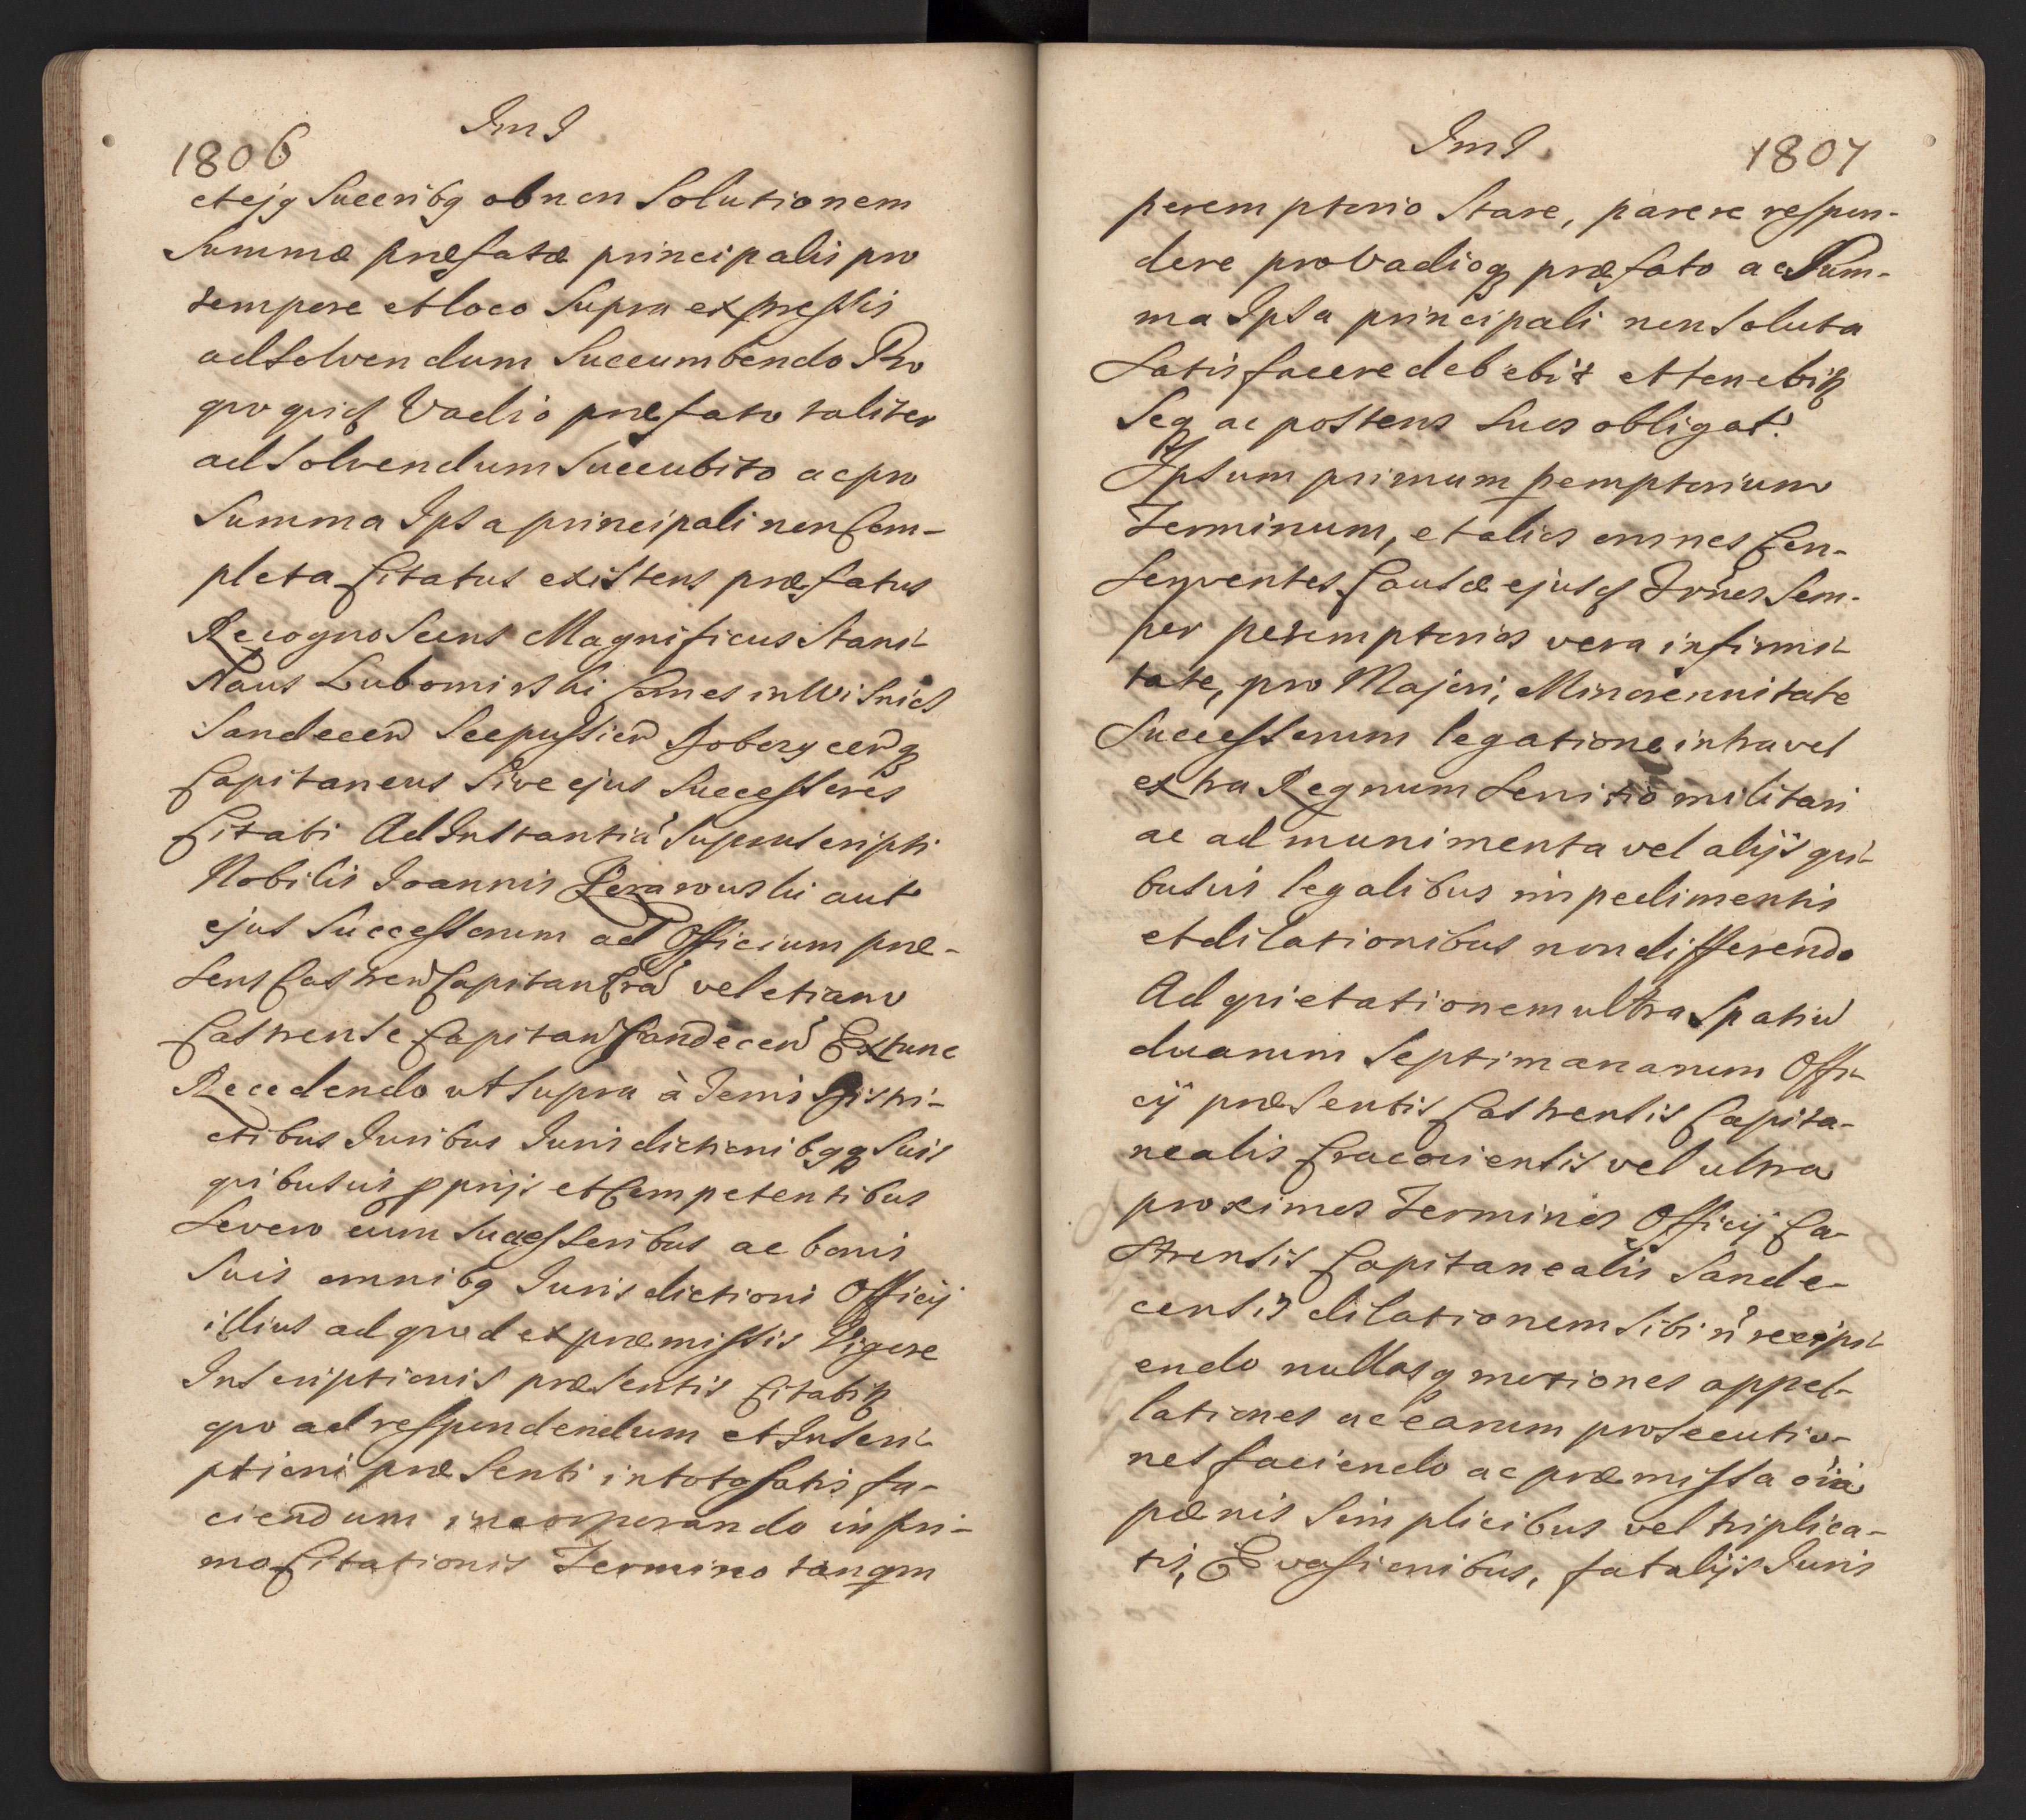 1806
ImJ
et ejq Succeribq ob non Solutionem
Summæ præfatæ principalis pro
tempore et loco Supra expressis
ad Solvendum Succumbendo Pro
quoquid Vadio præfato taliter
ad Solvendum Succubito ac pro
Summa Ipsa principali non Com-
pleta Citatus existens præfatus
Recognoscens Magnificus Stani-
slaus Lubomirski Comes in Wisnicz
Sandecen Scepusien Dobczycenq
Capitaneus Sive ejus Successores
Citati Ad Instantiã Suprascripti
Nobilis Joannis aut
ejus Successorum ad Officium præ-
sens Castren Capitan Cra vel etiam
Castrense Capitan Sandecen Ex tunc
Recedendo ut Supra à Terris Distri-
ctibus Juribus Jurisdictionibqq Suis
quibusvis ppriis et Competentibus
Se vero cum Successoribus ac bonis
Suis omnibq Jurisdictioni Officij
illius ad quod ex præmissis Vigore
Inscriptionis præsentis Citabit
quo ad respondendum et Inscri-
ptioni præsenti in toto Satis fa-
ciendum incorporando in pri-
mo Citationis Termino tanqm
ImJ
1807
peremptorio Stare, parere respon-
dere pro Vadioq præfato ac Sum-
ma Ipsa principali non Soluta
Satisfacere debebit et tenebit
Seq ac posteros Suos obligat.
Ipsum primum pemptorium
Terminum, et alios omnes Con-
sequentes Causæ ejusq Trnos Sem-
per peremptorios vera infirmi-
tate, pro Majori, Minorennitate
Successorum legatione intra vel
extra Regnum Servitio militari
ac ad munimenta vel alijs qui-
busvis legalibus impedimentis
et dilationibus non differendo
Ad quietationem ultra Spatiu
duarum Septimanarum Offi-
cij præsentis Castrensis Capita-
nealis Cracoviensis vel ultra
proximos Terminos Officij Ca-
strensis Capitanealis Sande-
censis dilationem Sibi ñ recipi-
endo nullasq motiones appel-
lationes ac earum prosecutio-
nes faciendo ac præmissa oia
pænis Simplicibus vel triplica-
tis, Evasionibus, fatalijs Juris